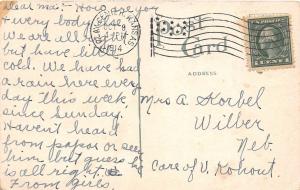 Dear Ma:- How are you
+ every body else.
We are all
but have little
cold. We have had
a rain here every
day this week
since Sunday.
Haven't heard
from papa or seen
him but guess he
is all right.
From Girls.
KANSAS
1914
Card
ADDRESS
1 CENT 1
Mrs A Korbel
Wilber
Neb.
Care of V. Kohout